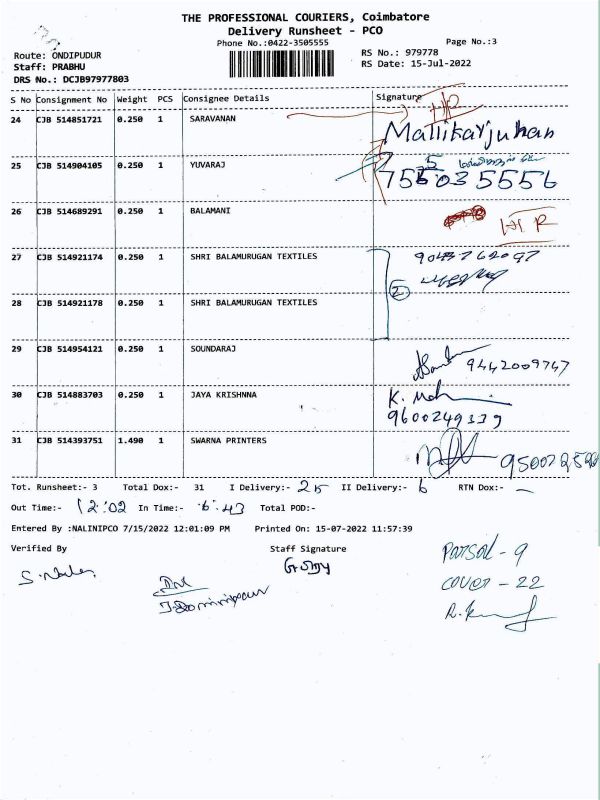 THE PROFESSIONAL COURIERS, Coimbatore
Delivery Runsheet - PCO
Phone No.:0422-3505555
Page No.:3
Route: ONDIPUDUR
RS No.: 979778
Staff: PRABHU
RS Date: 15-Jul-2022
DRS No.: DCJB97977803
S No Consignment No Weight PCS Consignee Details Signature
24 CJB 514851721 0.250 1 SARAVANAN Mallikarjuhan
25 CJB 514904105 0.250 1 YUVARAJ
26 CJB 514689291 0.250 1 BALAMANI
27 CJB 514921174 0.250 1 SHRI BALAMURUGAN TEXTILES
28 CJB 514921178 0.250 1 SHRI BALAMURUGAN TEXTILES 2
29 CJB 514954121 0.250 1 SOUNDARAJ 9442009747
30 CJB 514883703 0.250 1 JAYA KRISHNNA
9600249339
31 CJB 514393751 1.490 1 SWARNA PRINTERS
Tot. Runsheet:- 3 Total Dox:- 31 I Delivery:- 25 II Delivery:- 6 RTN Dox:- -
Out Time:- 12:02 In Time:- 6.43 Total POD:-
Entered By :NALINIPCO 7/15/2022 12:01:09 PM Printed On: 15-07-2022 11:57:39
Verified By Staff Signature
Parsal - 9
cover - 22